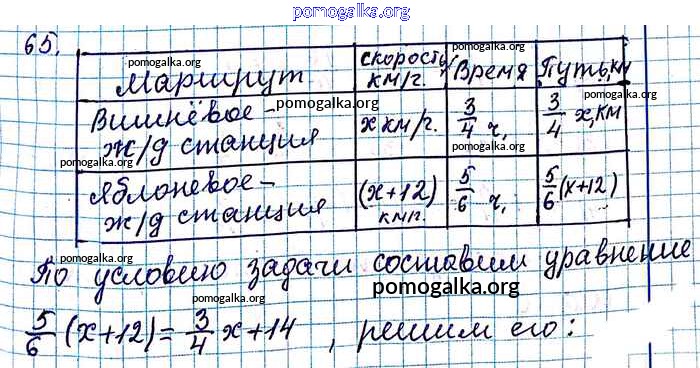 pomogalka.org
65.
pomogalka.org
Маршрут
скорость,
км/г.
pomogalka.org
Время
pomogalka.org
Путь, км
pomogalka.org
Вишнёвое -
ж/д станция
pomogalka.org
х км/г.
3/4 ч,
pomogalka.org
3/4 х, км
pomogalka.org
Яблоневое -
ж/д станция
pomogalka.org
(х+12)
км/г.
5/6 ч,
5/6 (х+12)
pomogalka.org
По условию задачи составим уравнение
pomogalka.org
pomogalka.org
5/6 (х+12) = 3/4 х + 14 , решим его:
pomogalka.org